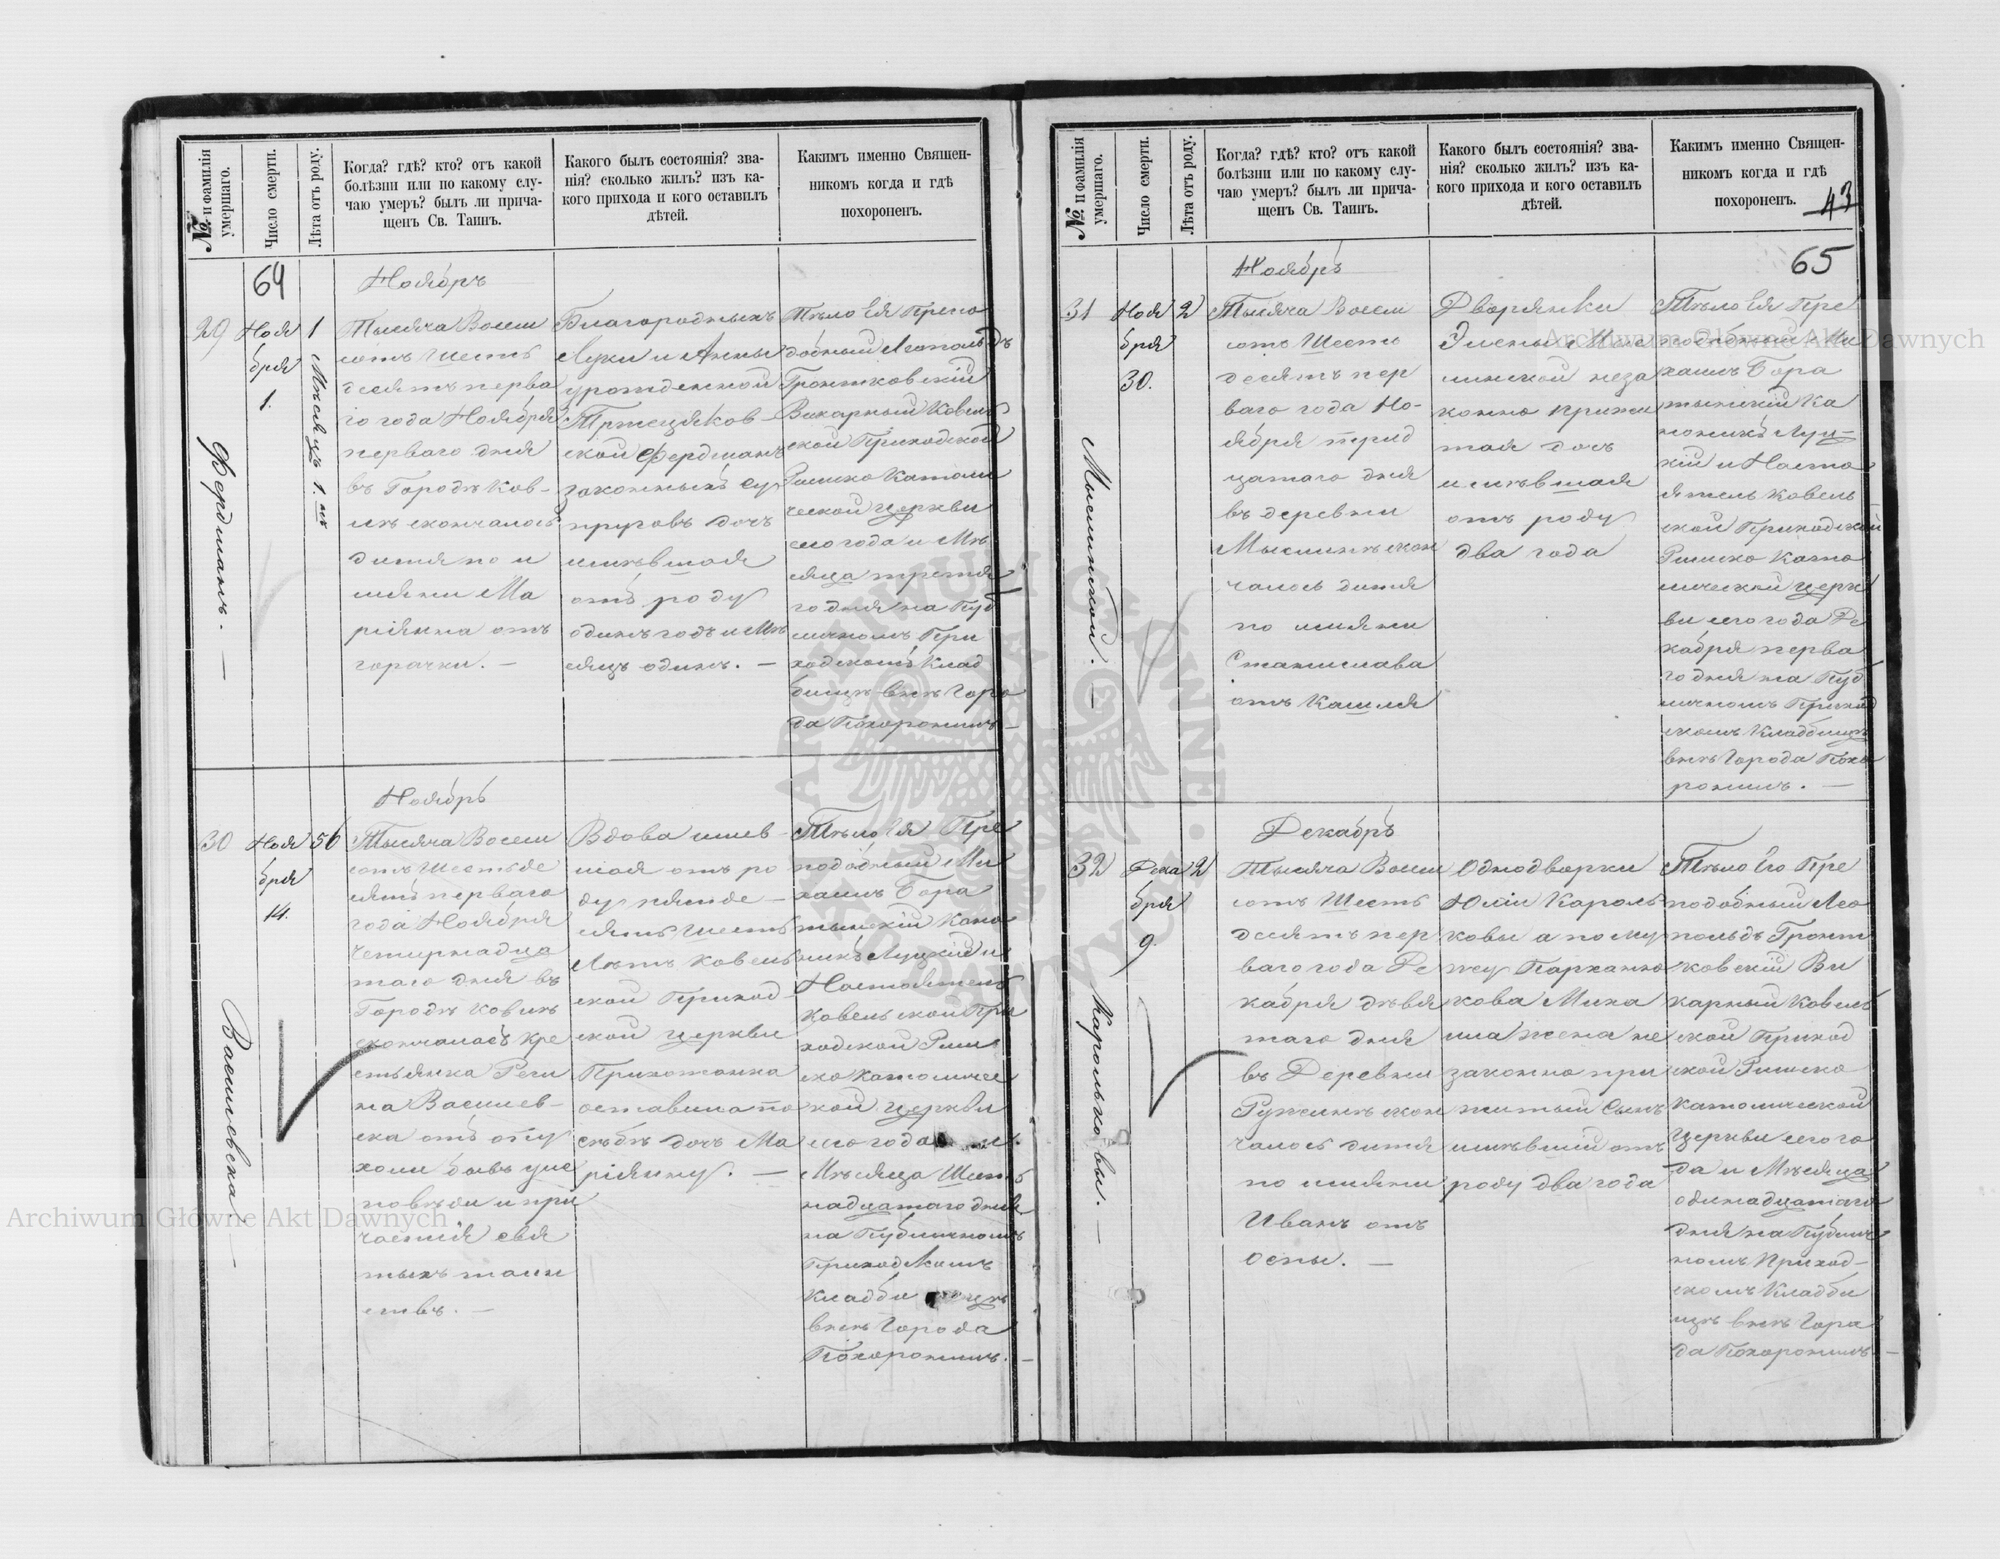 № и фамилія умершаго.
Число смерти.
Лѣта отъ роду.
Когда? гдѣ? кто? отъ какой
болѣзни или по какому слу-
чаю умеръ? былъ ли прича-
щенъ Св. Таинъ.
Какого былъ состоянія? зва-
нія? сколько жилъ? изъ ка-
кого прихода и кого оставилъ
дѣтей.
Какимъ именно Священ-
никомъ когда и гдѣ
похороненъ.
64
29
Фердманъ. —
Ноя
бря
1.
1
Мѣсяцъ 1.
Ноябрь
Тысяча Восем
сотъ Шесть
десятъ перва
го года Ноября
перваго дня
въ Городѣ Ков-
лѣ скончалось
дитя по и
мяни Ма
ріянна отъ
горачки. —
Благородныхъ
Луки и Анны
урожденной
скои Фердманъ
законныхъ су
пруговъ дочъ
имѣвшая
отъ роду
одинъ годъ и Мѣ
сяцъ одинъ. —
Тѣло Ея Препо
добный Леопольдъ
Гронтковскій
Викарный Ковель
ской Приходской
Римско Католи
ческой церкви
сего года и Мѣ
сяца третья
го дня на Пуб
личномъ При
ходскомъ Клад
бищѣ внѣ Горо
да Похоронилъ —
30
Василевска —
Ноя
бря
14.
56
Ноябрь
Тысяча Восем
сотъ Шестьде
сятъ перваго
года Ноября
четырнадца
таго дня въ
Городѣ Ковлѣ
скончалась кре
стьянка Реги
на Василев-
ска отъ опу
холи бывъ уис
повѣди и при
частія свя
тыхъ таин
ствъ. —
Вдова имев-
шая отъ ро
ду пятьде-
сятъ шесть
Лѣтъ Ковель
ской Приход-
ской церкви
Прихожанка
оставила по
себѣ дочь Ма
ріянну. —
Тѣло Ея Пре
подобный Ми
хаилъ Бора
тынскій Кано
никъ Луцкій и
Настоятель
Ковельской При
ходской Рим
ско Католичес
кой церкви
сего года и
Мѣсяца Шест
надцатаго дня
на Публичномъ
Приходскомъ
Кладбищѣ
внѣ Города
Похоронилъ. —
№ и фамилія умершаго.
Число смерти.
Лѣта отъ роду.
Когда? гдѣ? кто? отъ какой
болѣзни или по какому слу-
чаю умеръ? былъ ли прича-
щенъ Св. Таинъ.
Какого былъ состоянія? зва-
нія? сколько жилъ? изъ ка-
кого прихода и кого оставилъ
дѣтей.
Какимъ именно Священ-
никомъ когда и гдѣ
похороненъ.
43
65
31
Ноя
бря
30.
2
Ноябрь
Тысяча Восем
сотъ Шесть
десятъ пер
ваго года Но-
ября
цатаго дня
въ деревни
Мыслинѣ скон
чалось дитя
по имяни
Станислава
отъ Кашля
Дворянки
Элены
лижитая дочь
имѣвшая
отъ роду
два года
Тѣло Ея Пре
подобный Ми
хаилъ Бора
тынскій Ка
ноникъ Луц-
кій и Насто
ятель Ковель
ской Приходской
Римско Като
лической церк
ви сего года Де
кабря перва
го дня на Пуб
личномъ Приход
скомъ Кладбищѣ
внѣ Города Похо
ронилъ. —
32
Карольковы. —
Дека
бря
9.
2
Декабрь
Тысяча Восем
сотъ Шесть
десятъ пер
ваго года Де
кабря девя
таго дня
въ Деревни
Ружинѣ скон
чалось дитя
по имяни
Иванъ отъ
оспы. —
Однодворки
Юліи Кароль
ковы а по му
жу Парханю
кова Миха
ила жена не
законно при
житый Сынъ
имѣвшій отъ
роду два года
Тѣло Его Пре
подобный Лео
польдъ Гронт
ковскій Ви
карный Ковель
ской Приход
ской Римско
Католической
Церкви сего го
да и Мѣсяца
одинадцатаго
дня на Публич
номъ Приход-
скомъ Кладби
щѣ внѣ Горо
да Похоронилъ —
Archiwum Główne Akt Dawnych
Archiwum Główne Akt Dawnych
ARCHIWUM GŁÓWNE AKT DAWNYCH